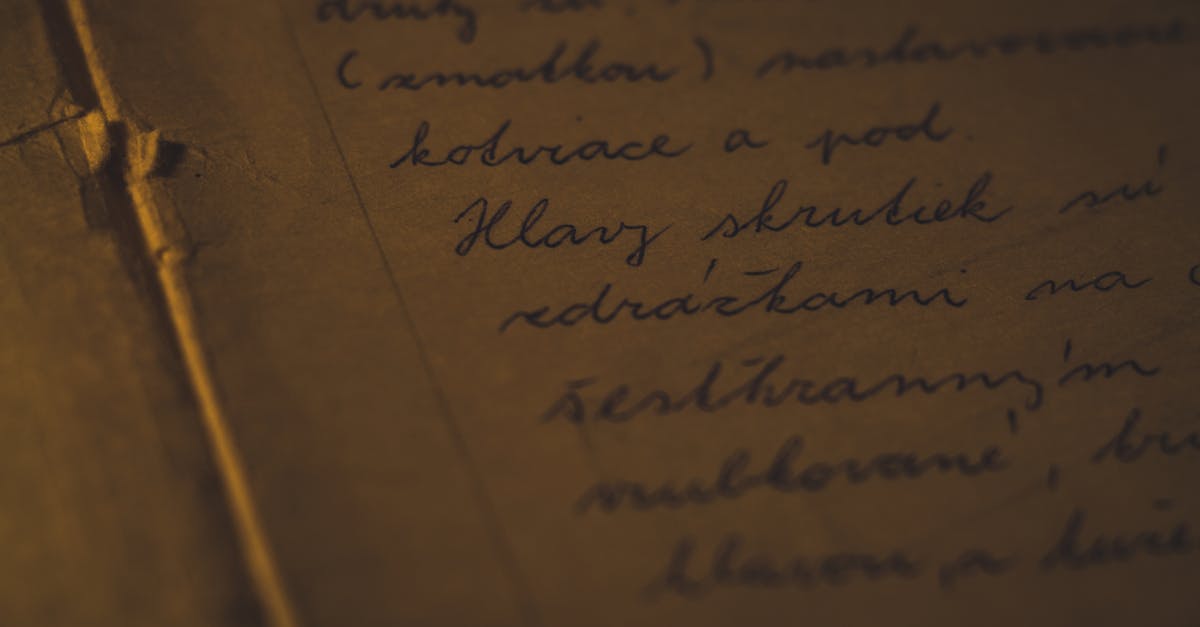 (zmatkou) nastavovacie
kotviace a pod.
Hlavy skrutiek sú
zdrážkami na
šesťhranným
vrubkované,
hlavou, s